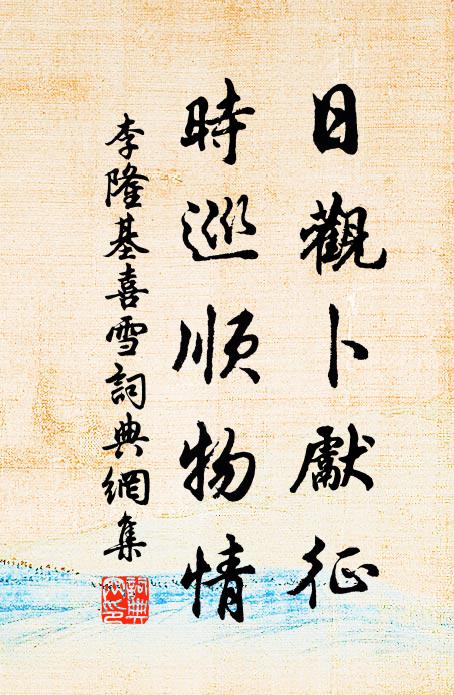 日觀卜獻征
時巡順物情
李隆基喜雪詞典網集